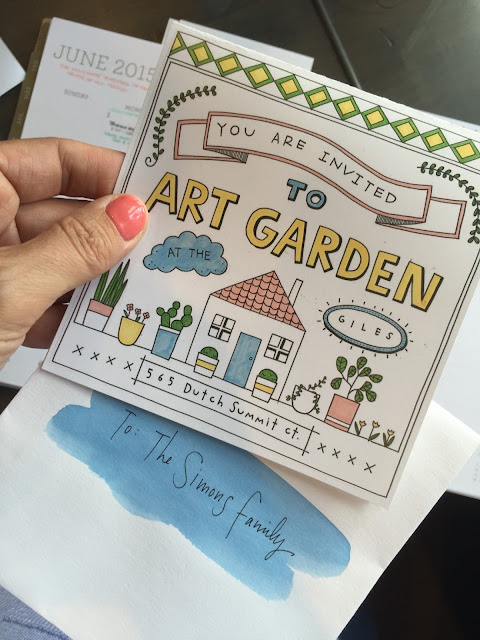 JUNE 2015
YOU ARE INVITED
TO
ART GARDEN
AT THE
GILES
x x x x
565 Dutch Summit ct.
x x x x
To: The Simons Family